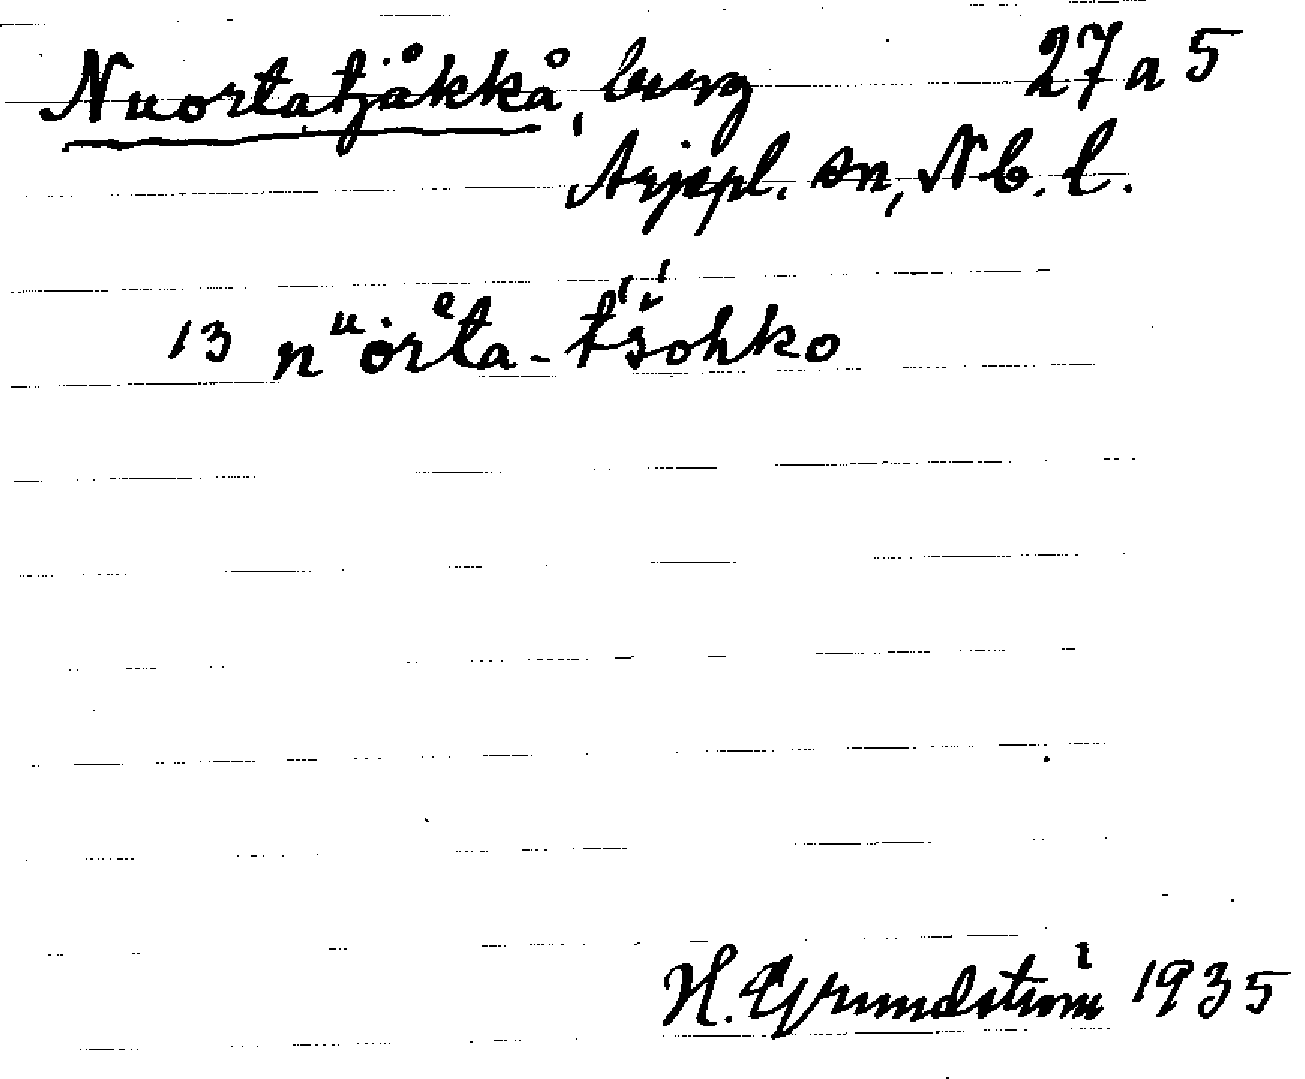 Nuortatjåkkå, berg 27 a 5
Arjepl. sn, Nb. l.
13 nᵘȯrᵉta-t́š́ohko
H. Grundström 1935